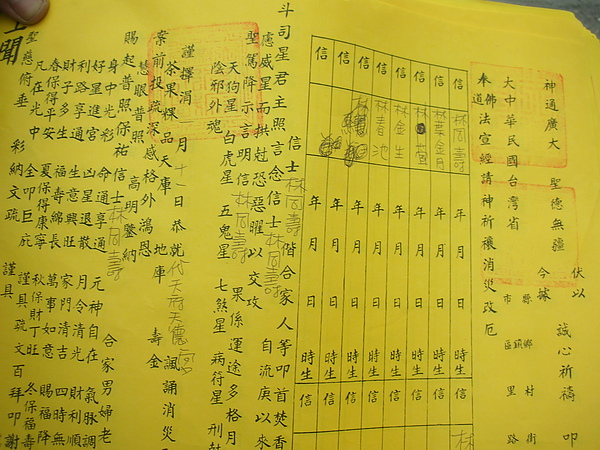 伏以
誠心祈禱 叩
神通廣大 聖德無疆 今據
縣市 鄉鎮區 村里 街路
大中華民國台灣省
奉道佛法宣經請神祈禳消災改厄
信 林同壽 年 月 日 時生 信 林
信 林 金月 年 月 日 時生 信
信 林 萱 年 月 日 時生 信
信 林金生 年 月 日 時生 信
信 林春池 年 月 日 時生 信
信 林 年 月 日 時生 信
信 年 月 日 時生 信
信士林同壽偕合家人等叩首焚香
斗司星君主照言念信士林同壽自流庚以來
慮威星而拱尅恐惡曜以交攻
聖駕降示言明信林同壽果係運途多格月
天狗星 白虎星 五鬼星 七煞星 病符星 刑
陰邪外魂
謹擇涓 月十一日恭就代天府天德宮 諷誦消災
茶果粿品天庫 地庫 壽金
案前投疏深感格外鴻恩
慧眼普照 高明鑒納
賜起普照保祐信士林同壽 合家男婦老
身中光彩 命通享通 元神自在 氣脉調
好星進宮 凶星退散 月令清光 財利順
利路享通 生意興旺 家門清吉 四時無
財子多生 福壽綿長 萬事如意 賜福降
春保得平安 夏保得康寧 秋保財丁旺 冬保福壽
凡在光中 全叩巨庇 謹具疏文百拜叩謝
聖慈俯垂 彩納文疏 謹具
上聞